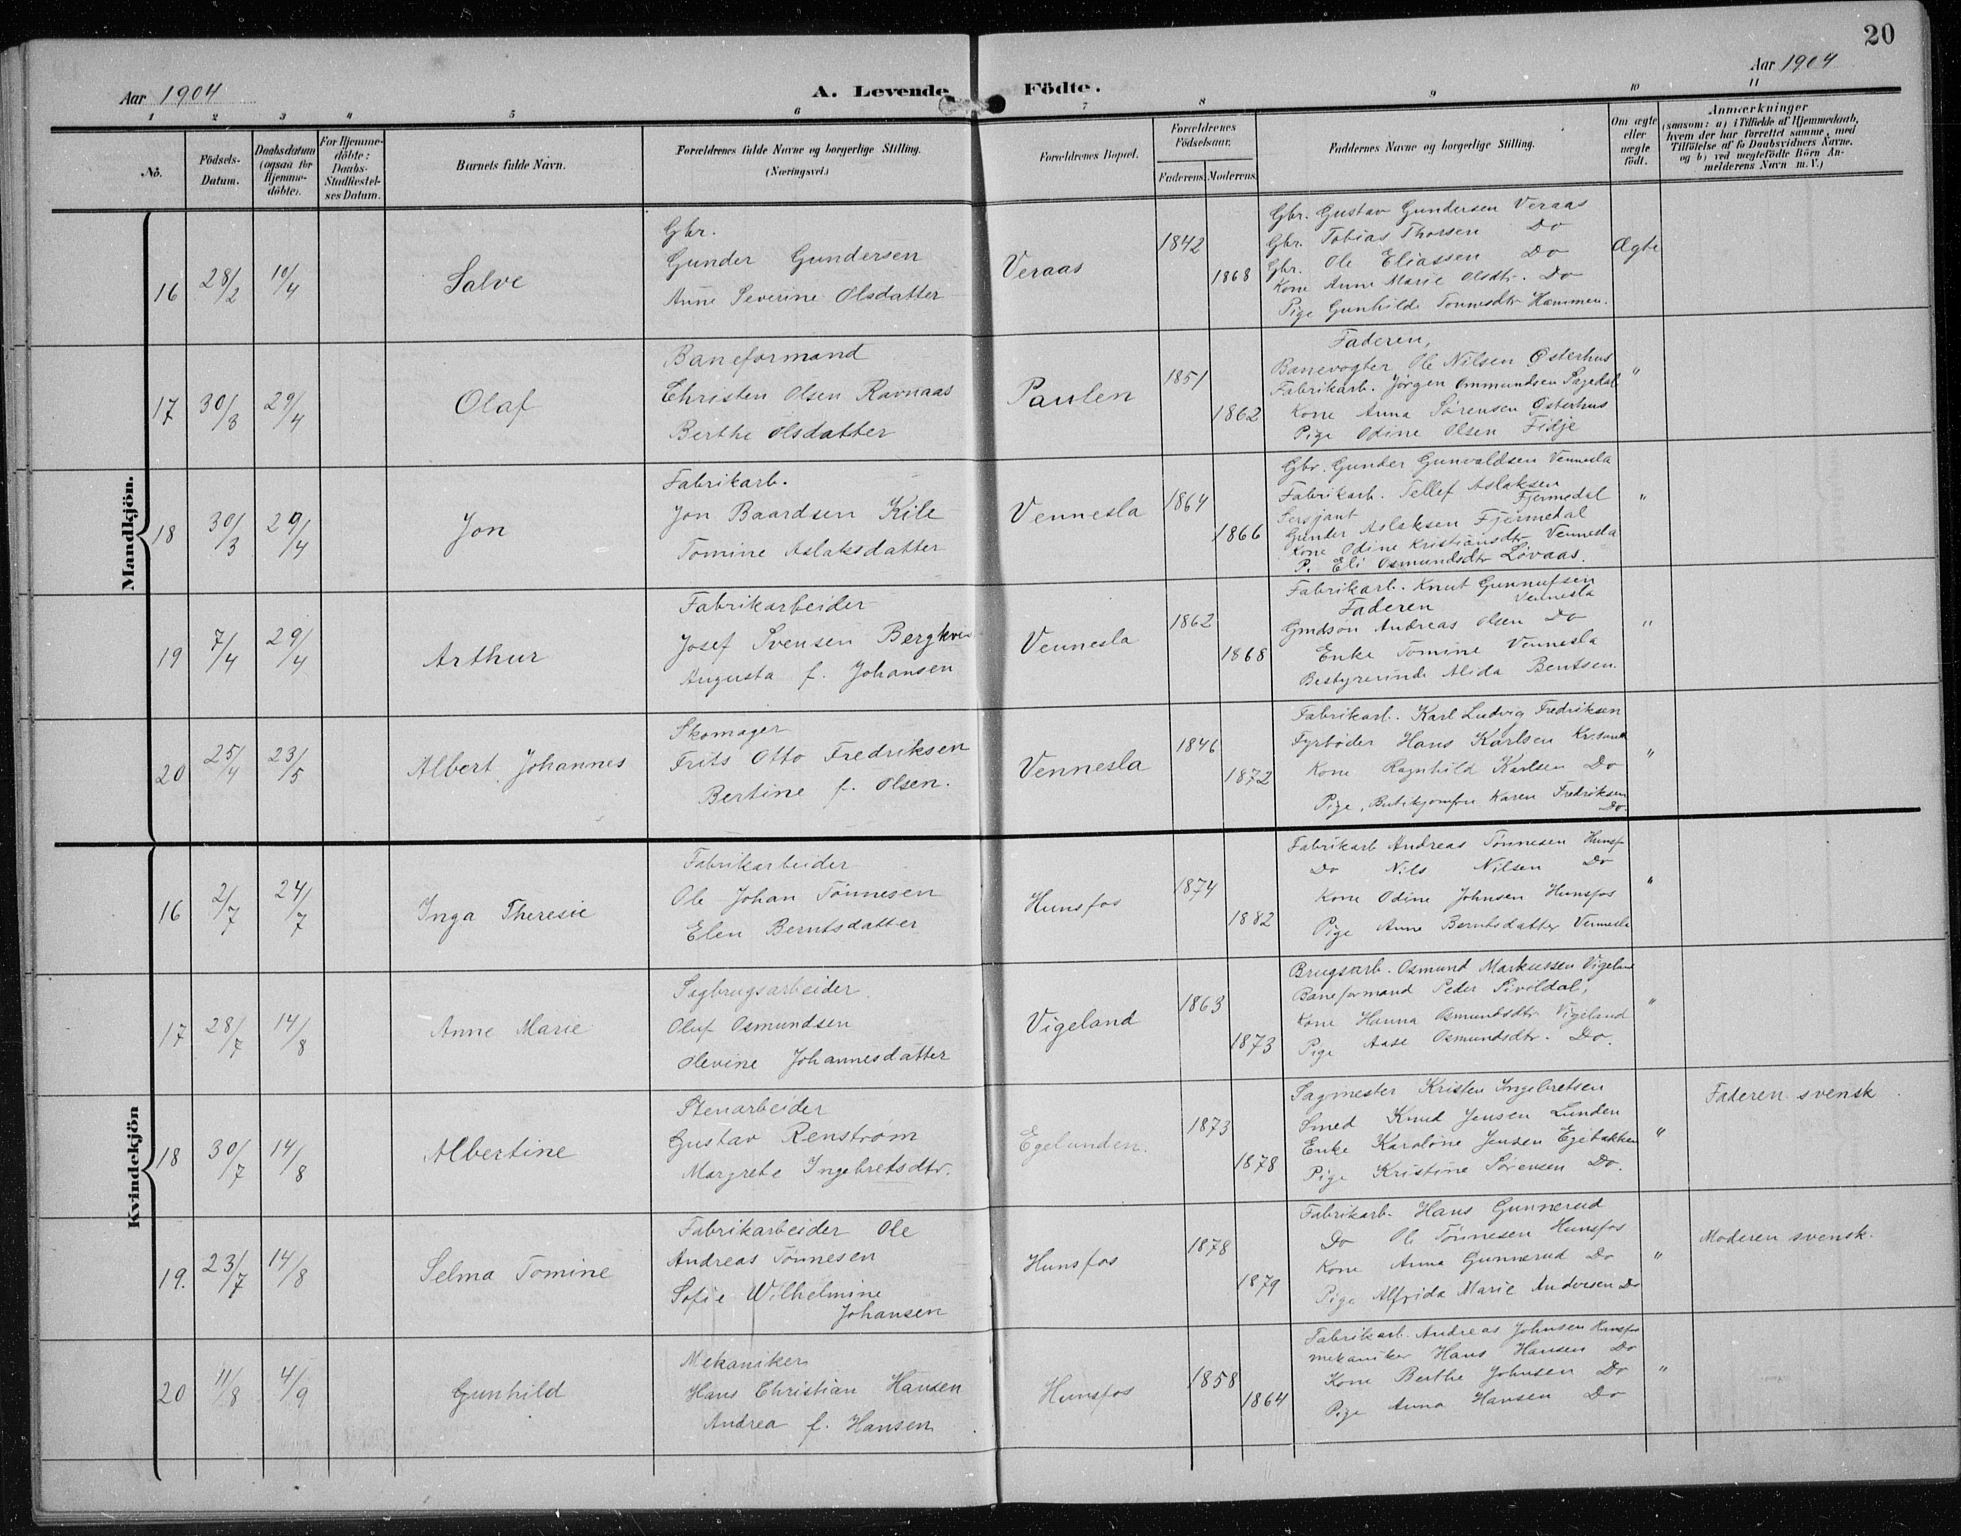 20
Aar 1904
A. Levende Födte.
Aar 1904
1 2 3 4 5 6 7 8 9 10 11
No.
Födsels-Datum.
Daabsdatum (ogsaa for Hjemme-döbte).
For Hjemme-döbte: Daabs-Stadfæstel-ses Datum.
Barnets fulde Navn.
Forældrenes fulde Navne og borgerlige Stilling.
(Næringsvei.)
Forældrenes Bopæl.
Forældrenes Födselsaar.
Faderens. Moderens.
Faddernes Navne og borgerlige Stilling.
Om ægte eller uægte födt.
Anmærkninger
(saasom: a) i Tilfælde af Hjemmedaab, hvem der har forrettet samme, med Tilföielse af to Daabsvidners Navne. og b) ved uægtefödte Börn An-melderens Navn m. V.)
Mandkjön.
16 28/2 10/4 Salve
Gbr.
Gunder Gundersen
Anne Severine Olsdatter
Veraas 1842 1868
Gbr. Gustav Gundersen Veraas
Gbr. Tobias Thorsen Do
Gbr. Ole Eliassen Do
Kone Anne Marie Olsdtr. Do
Pige Gunhilde Tønnesdtr Hammen.
Ægte
17 30/3 29/4 Olaf
Baneformand
Christen Olsen Ravnaas
Berthe Olsdatter
Paulen 1851 1862
Faderen,
Banevogter Ole Nilsen Østerhus
Fabrikarb. Jørgen Ommundsen Sagedal
Kone Anna Sørensen Østerhus
Pige Odine Olsen Fidje
"
18 30/3 29/4 Jon
Fabrikarb.
Jon Baardsen Kile
Tomine Aslaksdatter
Vennesla 1864 1866
Gbr. Gunder Gunvaldsen Vennesla
Fabrikarb. Tellef Aslaksen
Fjermedal
Sersjant
Gunder Aslaksen Fjermedal
Kone Odine Kristiansdtr Vennesla
P. Eli Osmundsdtr Løvaas.
"
19 7/4 29/4 Arthur
Fabrikarbeider
Josef Svensen
Augusta f. Johansen
Vennesla 1862 1868
Fabrikarb. Knut Gunnufsen
Vennesla
Faderen
Gmdsøn Andreas Olsen Do
Enke Tomine Vennesla
Bestyrerinde Alida Bentsen
"
20 25/4 23/5 Albert Johannes
Skomager
Frits Otto Fredriksen
Bertine f. Olsen.
Vennesla 1846 1872
Fabrikarb. Karl Ludvig Fredriksen
Fyrbøder Hans Karlsen Kr.sand
Kone Ragnhild Karlsen Do
Pige, Butikjomfru Karen Fredriksen
Do
"
Kvindekjön
16 2/7 24/7 Inga Theresie
Fabrikarbeider
Ole Johan Tønnesen
Elen Berntsdatter
Hunsfos 1874 1882
Fabrikarb Andreas Tønnesen Hunsf
Do Nils Nilsen Do
Kone Odine Johnsen Hunsfos
Pige Anne Berntsdatter Vennesla
"
17 28/7 14/8 Anne Marie
Sagbrugsarbeider
Oluf Osmundsen
Olevine Johannesdatter
Vigeland 1863 1873
Brugsarb. Osmund Markussen Vigeland
Baneformand Peder
Kone Hanna Osmundsdtr Vigeland
Pige Aase Osmundsdtr. Do.
"
18 30/7 14/8 Albertine
Stenarbeider
Gustav Renstrøm
Margrete Ingebretsdtr.
Egelunden. 1873 1878
Sagmester Kristen Ingebretsen
Smed Knud Jensen Lunden
Enke Karoline Jensen Egebakken
Pige Kristine Sørensen Do.
"
Faderen svensk
19. 23/7 14/8 Selma Tomine
Fabrikarbeider Ole
Andreas Tønnesen
Sofie Wilhelmine
Johansen
Hunsfos 1878 1879
Fabrikarb. Hans Gunnerud
Do Ole Tønnesen Hunsfos
Kone Anna Gunnerud Do
Pige Alfrida Marie Andersen Do
"
Moderen svensk.
20 11/8 4/9 Gunhild
Mekaniker
Hans Christian Hansen
Andrea f. Hansen
Hunsfos 1858 1864
Fabrikarb. Andreas Johnsen Hunsfos
mekaniker Hans Hansen Do
Kone Berthe Johnsen Do
Pige Anna Hansen Do
"